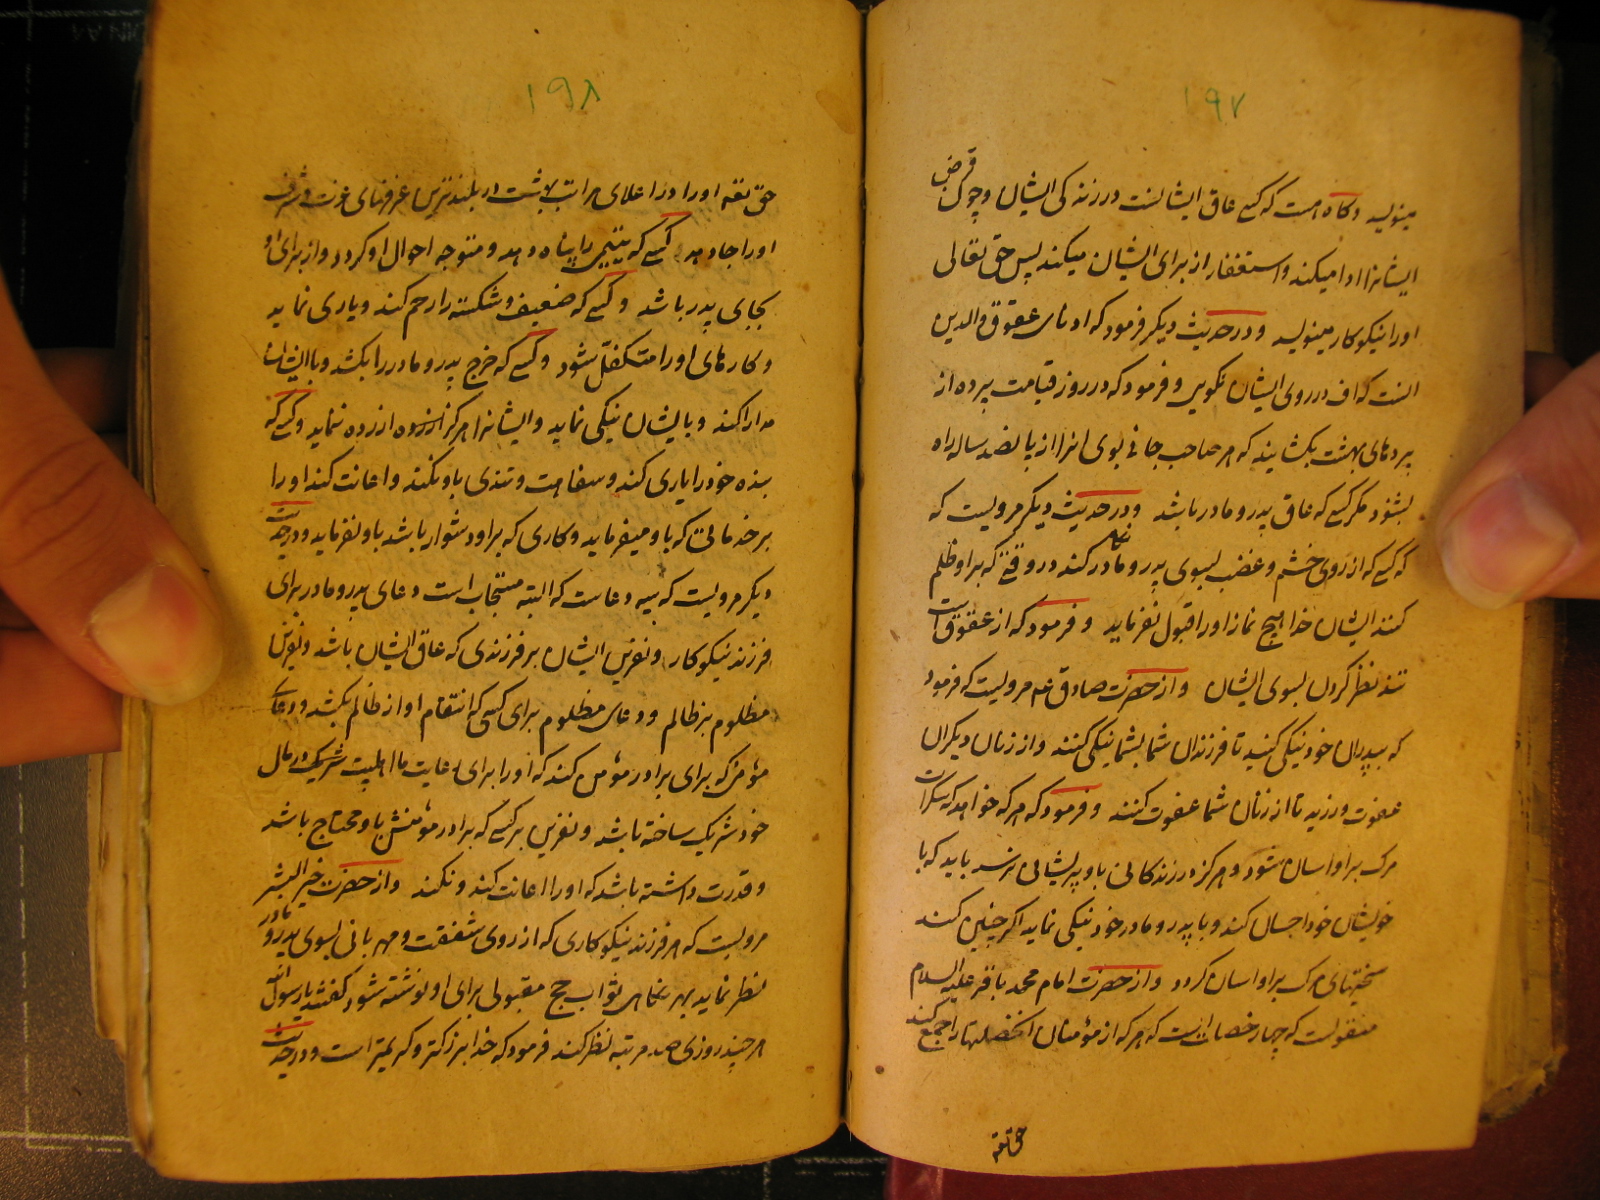 ۱۹۷
مینویسد و گاه هست که کسی عاق ایشانست در زندگی ایشان و چون قرض
ایشانرا ادا میکند و استغفار از برای ایشان میکند پس حق تعالی
اورا نیکوکار مینویسد و در حدیث دیگر فرمود که ادنای عقوق والدین
انست که اف در روی ایشان نکویی و فرمود که در روز قیامت پرده از
پردهای بهشت بکشایند که هر صاحب جانی بوی انرا از پانصد ساله راه
بشنود مکر کسی که عاق پدر و مادر باشد و در حدیث دیکر مرویست که
که کسی که از روی خشم و غضب بسوی پدر و مادر نگاه کند در وقتی که بر او ظلم
کنند ایشان خدا هیچ نماز اورا قبول نفرماید و فرمود که از عقوق است
تند نظر کردن بسوی ایشان و از حضرت صادق ع م مرویست که فرمود
که بپدران خود نیکی کنید تا فرزندان شما بشما نیکی کنند و از زنان دیکران
عفت ورزید تا از زنان شما عفت کنند و فرمود که هر که خواهد که سکرات
مرک بر او اسان شود و هرکز در زندکانی باو پریشانی نرسد باید که با
خویشان خود احسان کند و با پدر و مادر خود نیکی نماید اکر چنین کند
سختیهای مرک بر او اسان کردد و از حضرت امام محمد باقر علیه السلام
منقولست که چهار خصلت است که هر که از مؤمنان انخصلتها را جمع کند
حق تعه
۱۹۸
حق تعه اورا در اعلای مراتب بهشت در بلندترین غرفهای عزت و شرف
اورا جا دهد کسی که یتیمی را پناه دهد و متوجه احوال او کردد و از برای او
بجای پدر باشد و کسی که ضعیف و شکسته را رحم کند و یاری نماید
و کارهای اورا متکفل شود و کسی که خرج پدر و مادر را بکشد و با ایشان
مدارا کند و با یشان نیکی نماید و ایشانرا هرکز ازرده نماید و کسی که
بنده خود را یاری کند و سفاهت و تندی باو نکند و اعانت کند اورا
بر خدماتی که باو میفرماید و کاری که بر او دشوار باشد باو نفرماید و در حدیث
دیکر مرویست که سه دعاست که البته مستجاب است دعای پدر و مادر برای
فرزند نیکوکار و نفرین ایشان بر فرزندی که عاق ایشان باشد و نفرین
مظلوم بر ظالم و دعای مظلوم برای کسی که انتقام او از ظالم بکشد و دعای
مؤمن که برای برادر مؤمن کند که اورا برای رعایت ما اهلبیت شریک در مال
خود شریک ساخته باشد و نفرین بر کسی که برادر مؤمنش باو محتاج باشد
و قدرت داشته باشد که اورا اعانت کند و نکند و از حضرت خیر البشر
مرویست که هر فرزند نیکوکاری که از روی شفقت و مهربانی بسوی پدر و مادر
نظر نماید بهر نکاهی ثواب حج مقبولی برای او نوشته شود گفتند یا رسول الله
هر چند روزی صد مرتبه نظر کند فرمود که خدا بزرکتر و کریمتر است و در حدیث